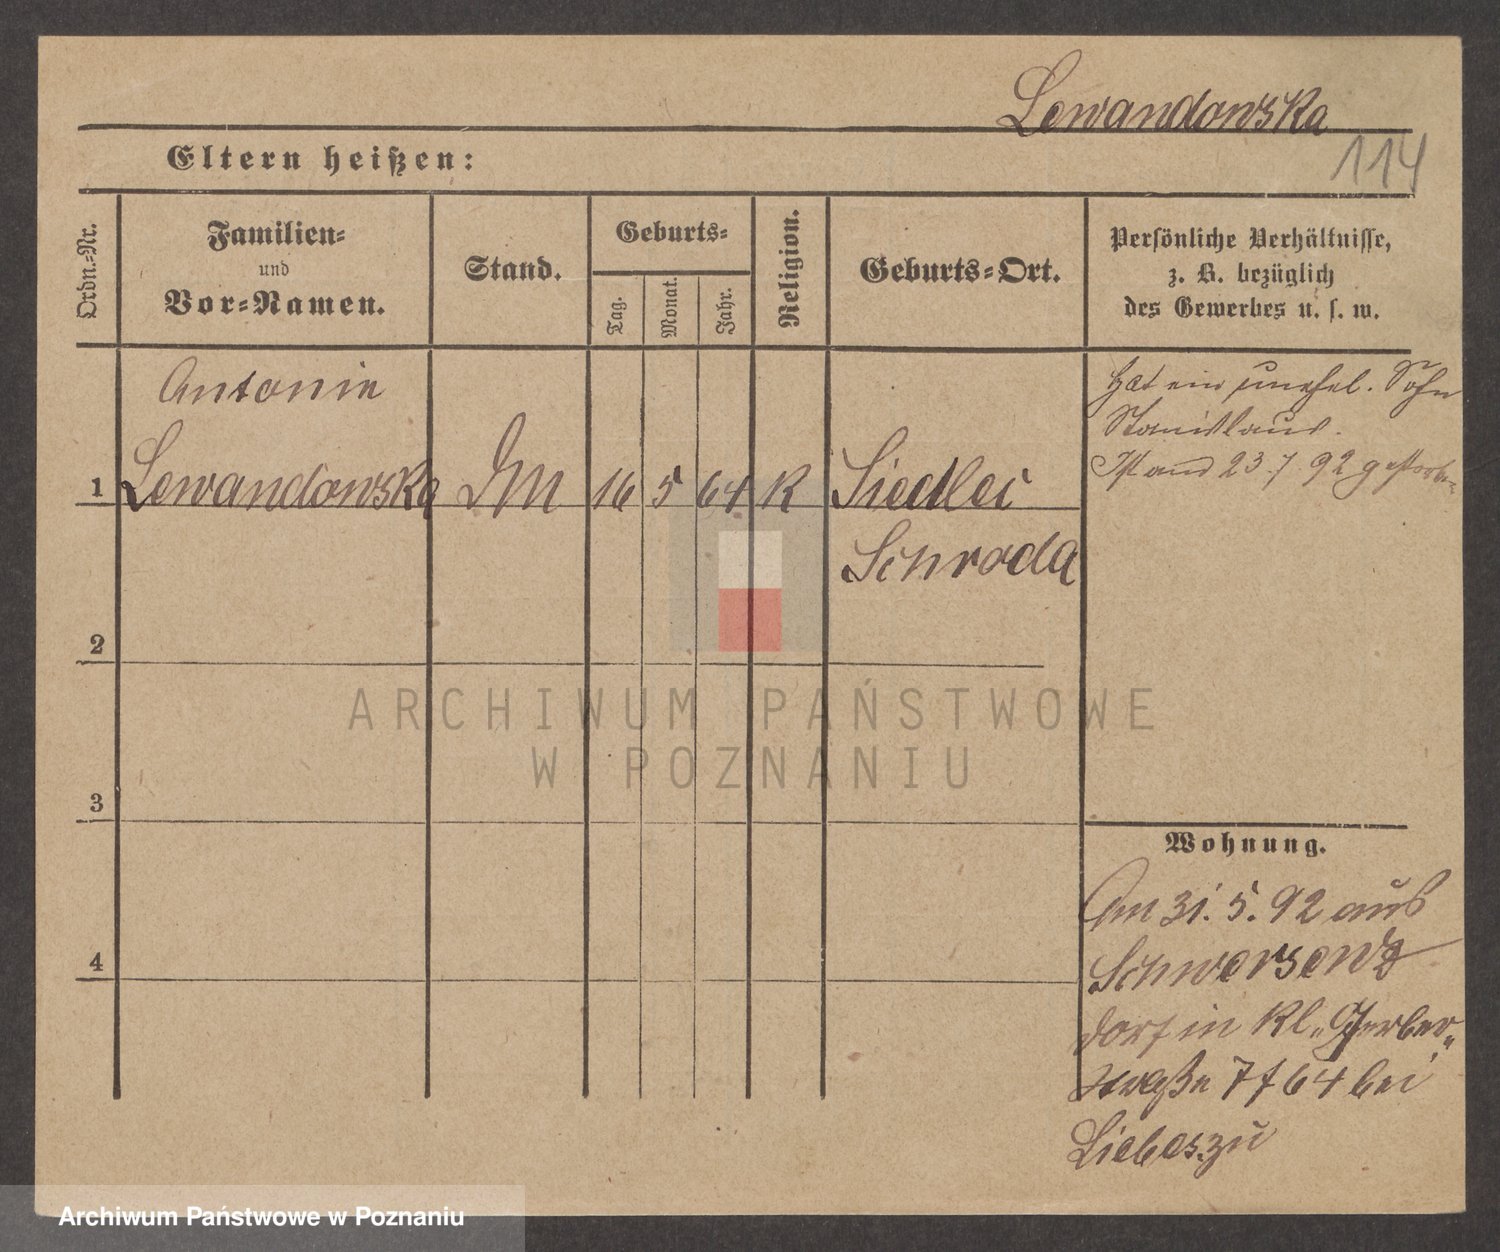 Lewandowska
114
Eltern heißen:
Ordn.-Nr.
Familien-
und
Vor-Namen.
Stand.
Geburts-
Tag.
Monat.
Jahr.
Religion.
Geburts-Ort.
Persönliche Verhältnisse,
z. B. bezüglich
des Gewerbes u. s. w.
Antonie
1 Lewandowska DM 16 5 64 K Siedlec
Schroda
Hat ein unehel. Sohn
Stanislaus.
Ist am 23.7.92 gestorben
2
3
4
Wohnung.
Am 31.5.92 aus
Schwersenz
dorf in Kl. Gerber-
straße 7/64 bei
Liebes zu
ARCHIWUM PAŃSTWOWE
W POZNANIU
Archiwum Państwowe w Poznaniu